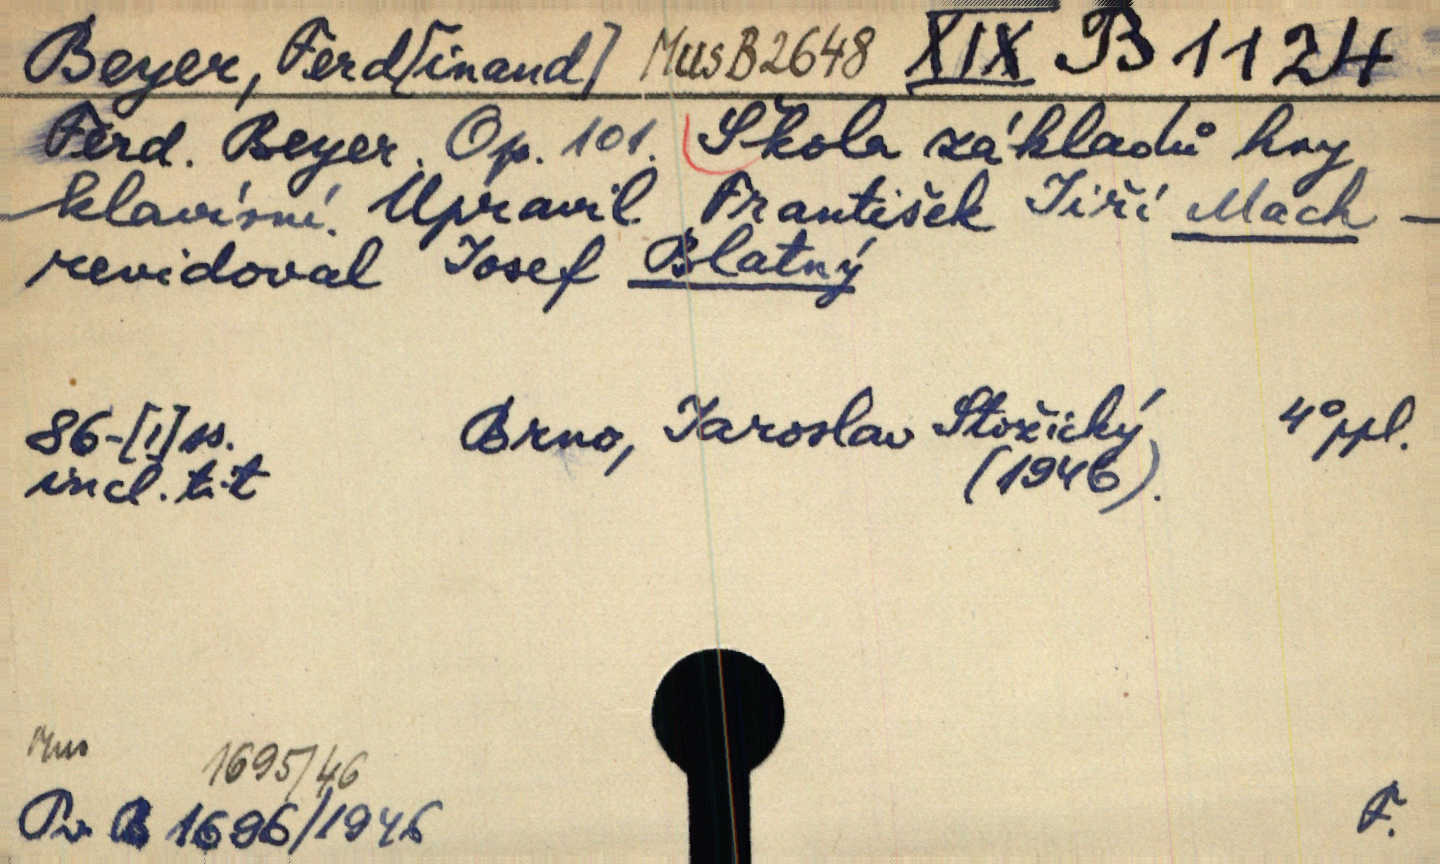 Beyer, Ferd[inand] MusB2648 XIX B 1124
Ferd. Beyer. Op. 101. Škola základů hry
klavírní. Upravil František Jiří Mach –
revidoval Josef Blatný
86-[1] ss. Brno, Jaroslav Stožický 4° ppl.
incl. tit (1946).
Mus 1695/46
Pv B 1696/1946 F.